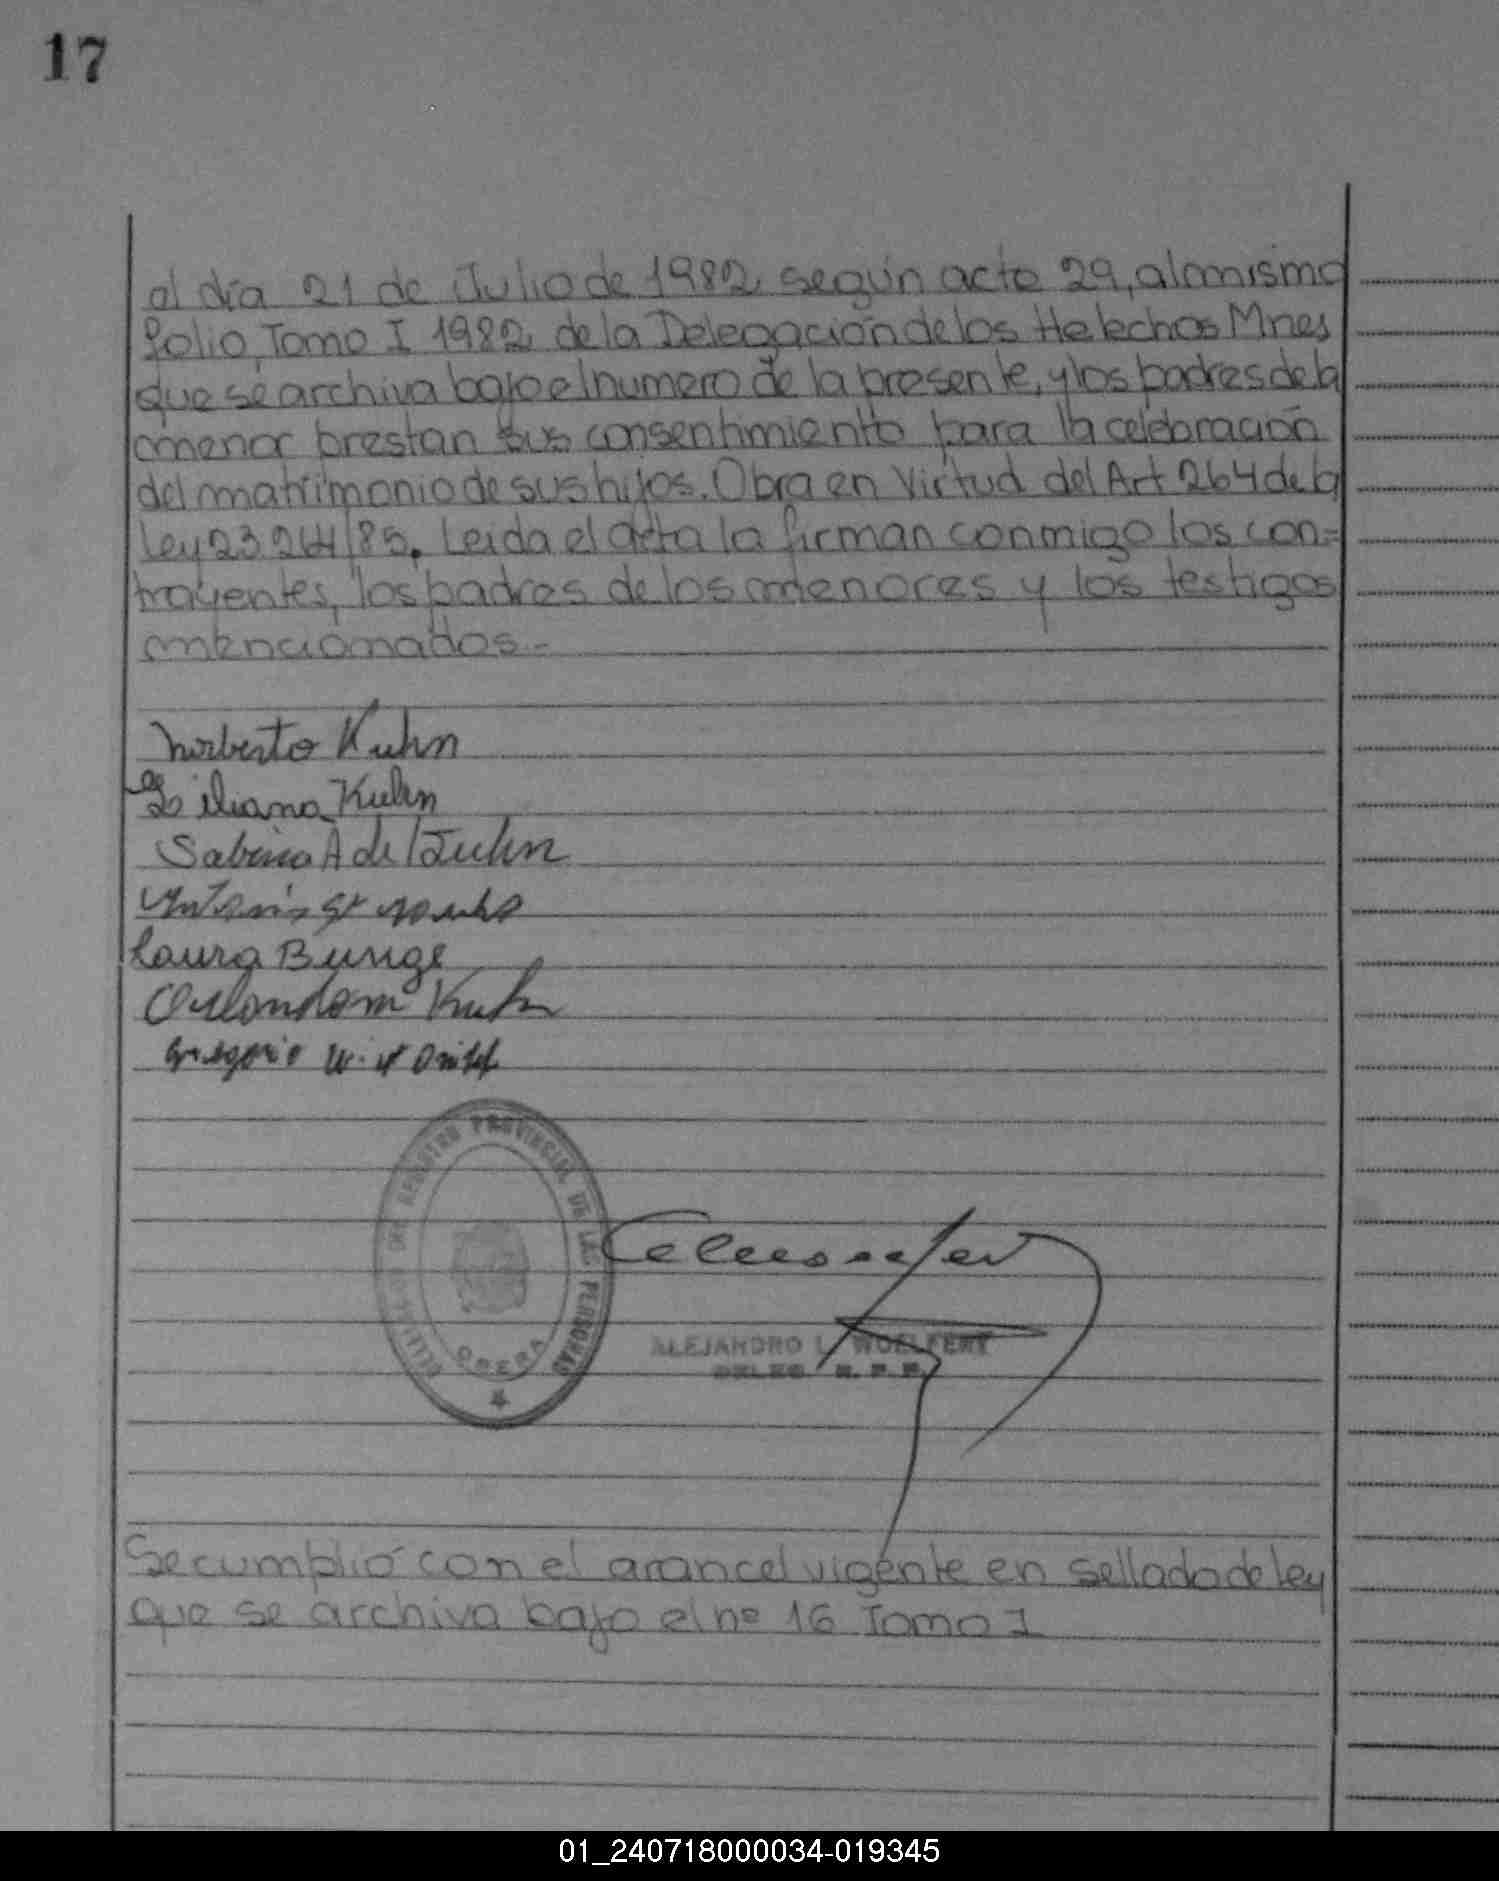 17
el día 21 de Julio de 1982, según acta 29, al mismo
folio, Tomo I 1982 de la Delegación de los Helechos Mnes
que se archiva bajo el numero de la presente, y los padres de la
menor prestan sus consentimiento para la celebración
del matrimonio de sus hijos. Obra en Virtud del Art 264 de la
ley 23.264/85. Leida el acta la firman conmigo los con=
trayentes, los padres de los menores y los testigos
mencionados.-
Norberto Kuhn
Liliana Kuhn
Sabina A de Kuhn
Laura Bunge
Kuhn
Gregorio
REGISTRO PROVINCIAL DE LAS PERSONAS
OBERA
ALEJANDRO L. WOELFERT
DELEG. R. P. P.
Se cumplió con el arancel vigente en sellado de ley
que se archiva bajo el nº 16 Tomo I
01_240718000034-019345